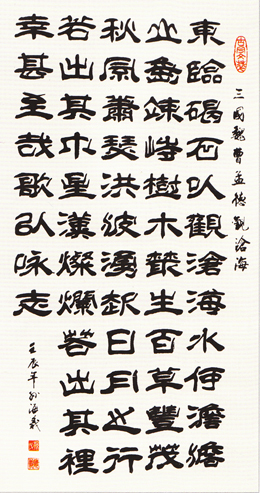 三國魏曹孟德觀滄海
東臨碣石以觀滄海水何澹澹
山島竦峙樹木叢生百草豐茂
秋風蕭瑟洪波湧起日月之行
若出其中星漢燦爛若出其裡
幸甚至哉歌以咏志
壬辰年